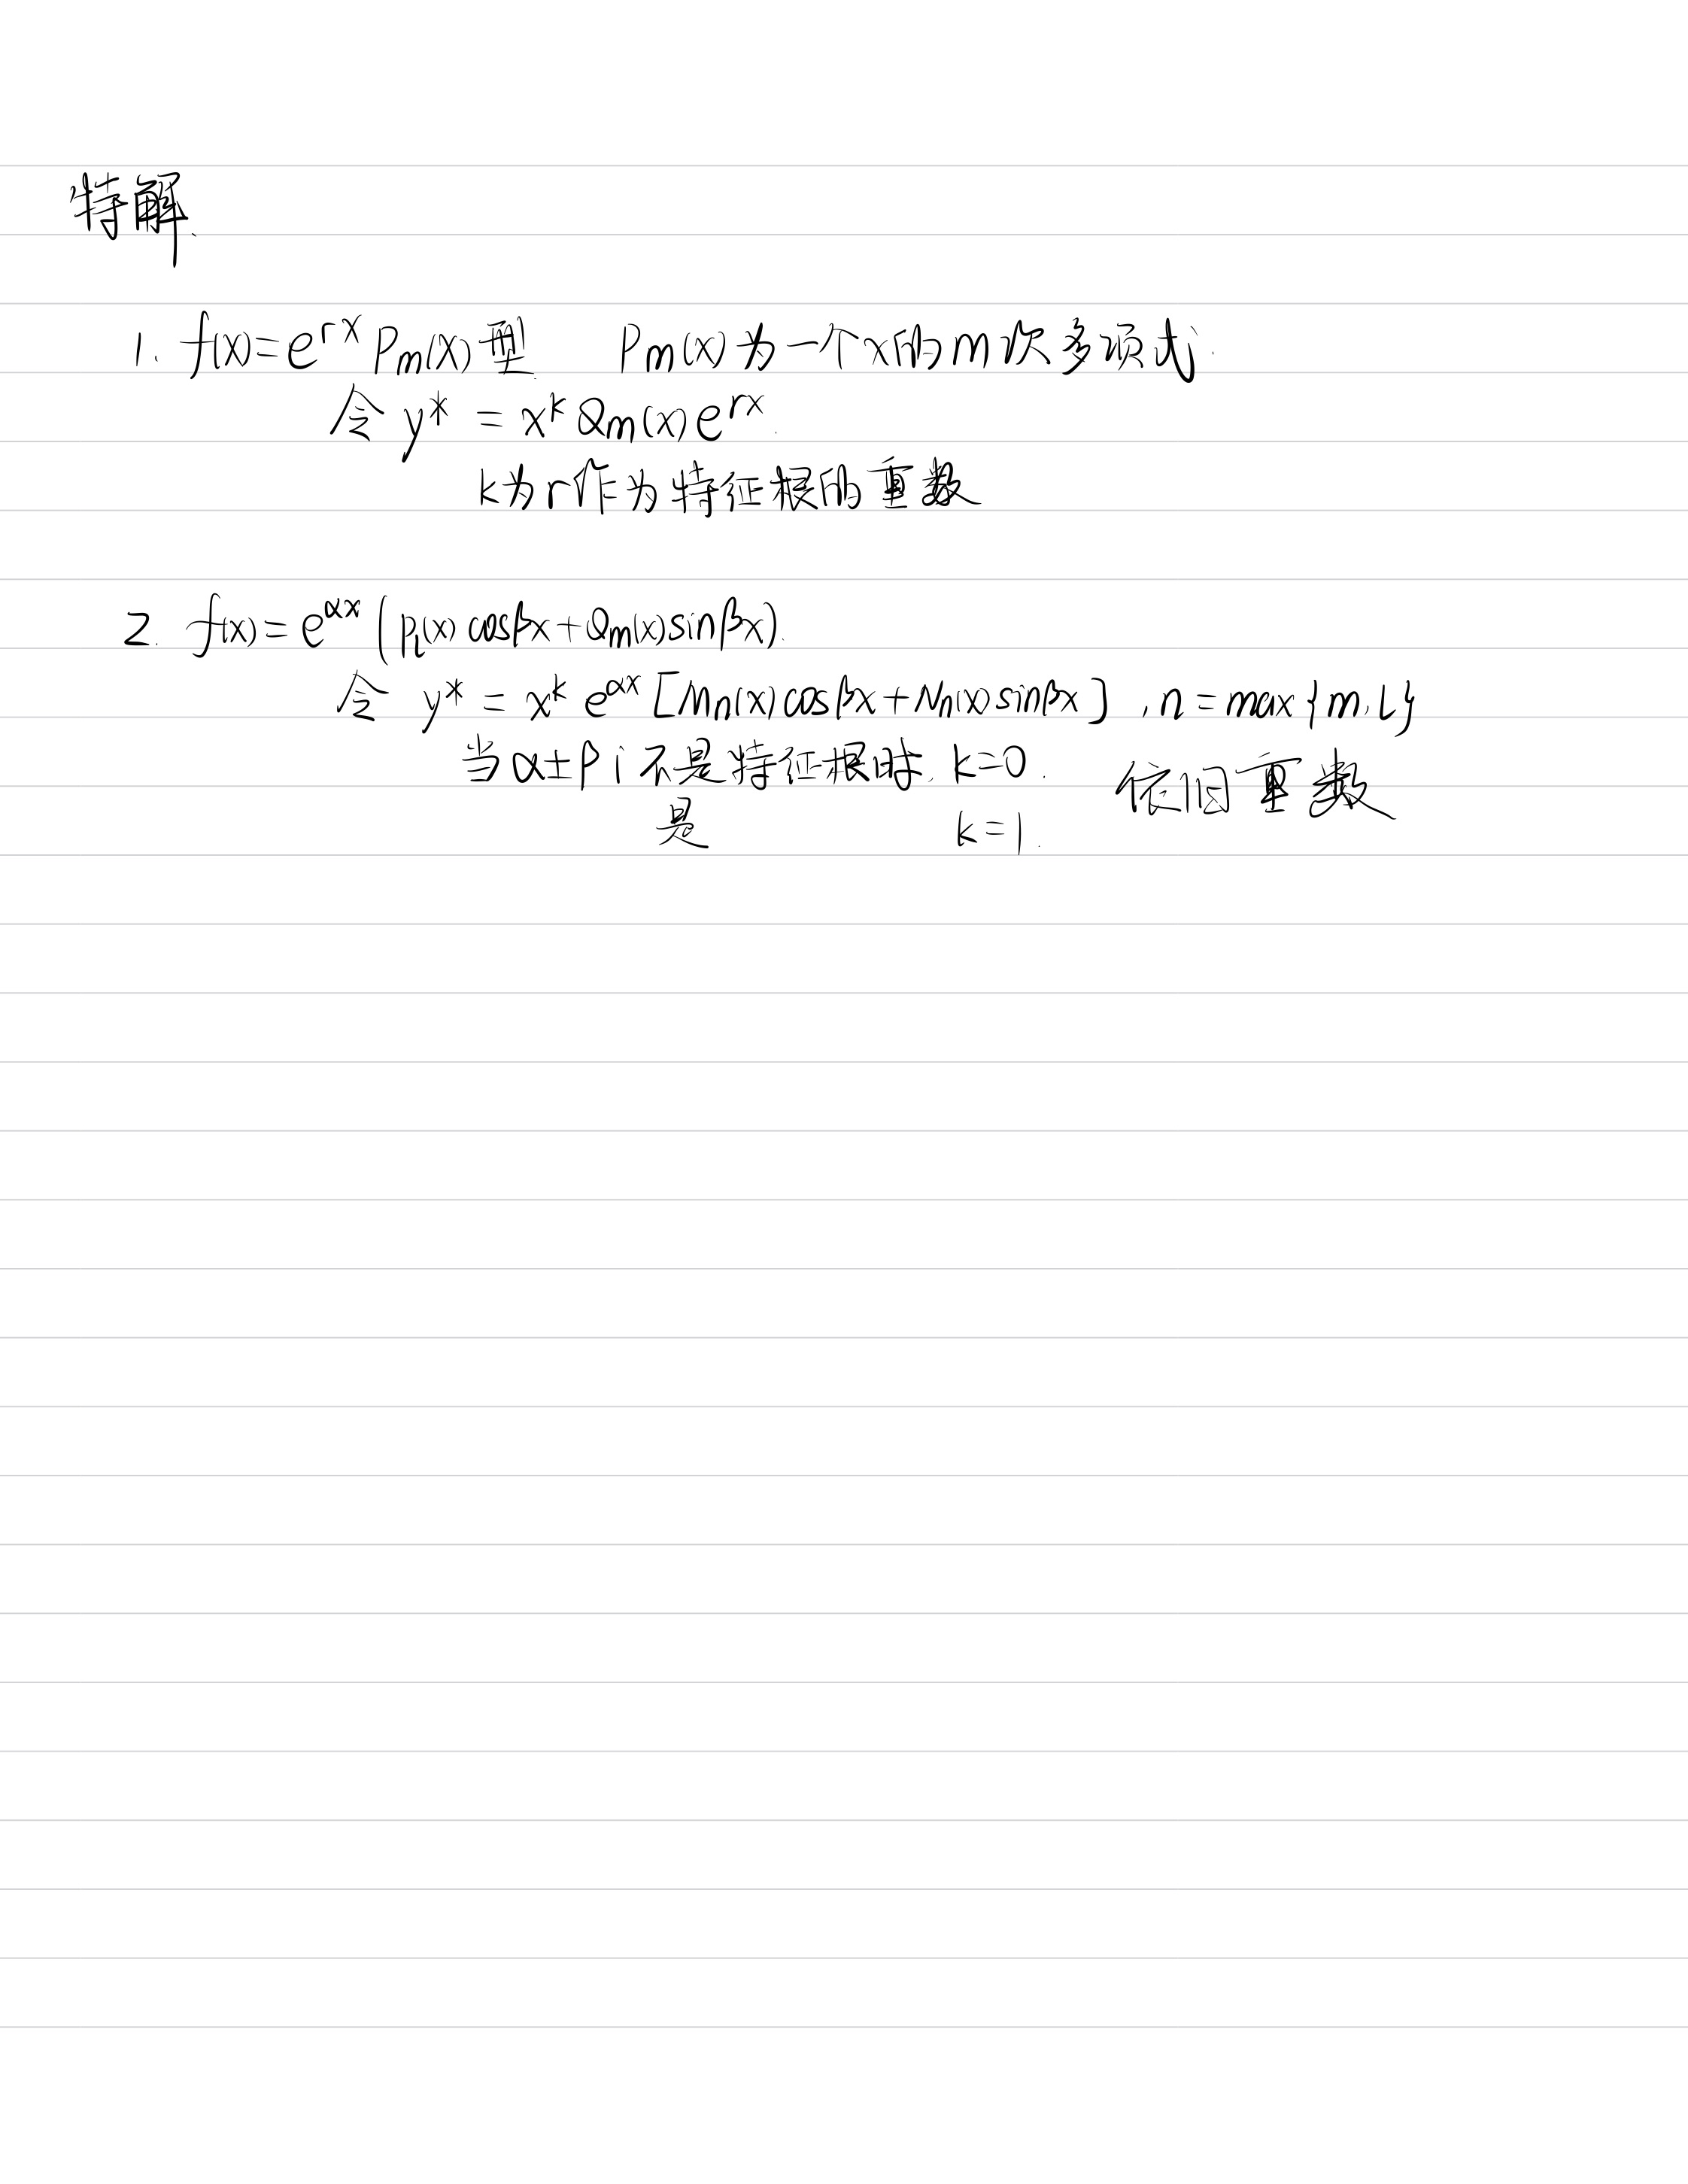 特解.
1. f(x)=e^{rx}P_m(x)型. P_m(x)为一个x的m次多项式.
令 y* = x^k Q_m(x)e^{rx}.
k为r作为特征根的重数
2. f(x)=e^{αx}(P_l(x)cosβx+Q_m(x)sinβx).
令 y* = x^k e^{αx}[M_n(x)cosβx+N_n(x)sinβx], n=max{m,L}
当α±βi不是特征根时, k=0. 依旧重数
是 k=1.